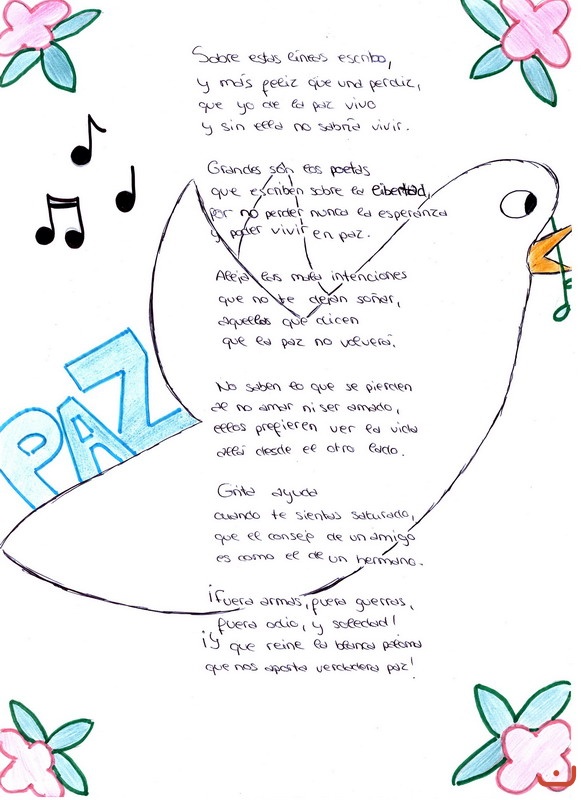 Sobre estas líneas escribo,
y más feliz que una perdiz,
que yo de la paz vivo
y sin ella no sabría vivir.
Grandes són los poetas
que escriben sobre la libertad,
por no perder nunca la esperanza
y poder vivir en paz.
Aleja las mala intenciones
que no te dejan soñar,
aquellas que dicen
que la paz no volverá.
No saben lo que se pierden
de no amar ni ser amado,
ellos prefieren ver la vida
allá desde el otro lado.
Grita ayuda
cuando te sientas saturado,
que el consejo de un amigo
es como el de un hermano.
¡Fuera armas, fuera guerras,
fuera odio, y soledad!
¡Y que reine la blanca paloma
que nos aporta verdadera paz!
PAZ